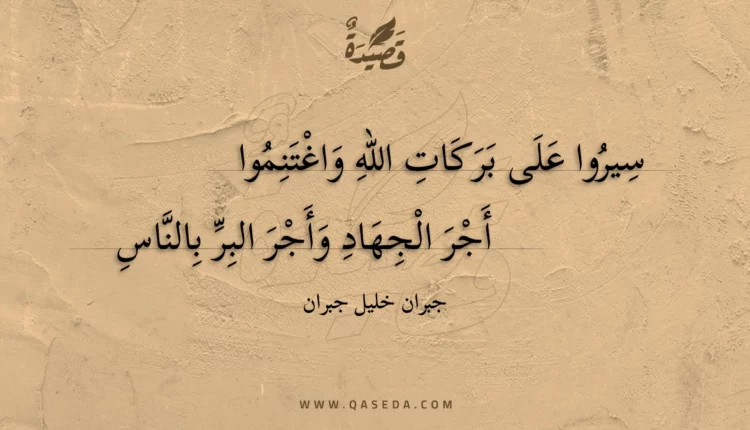 قَصِيدَةٌ
سِيرُوا عَلَى بَرَكَاتِ اللهِ وَاغْتَنِمُوا
أَجْرَ الْجِهَادِ وَأَجْرَ البِرِّ بِالنَّاسِ
جبران خليل جبران
WWW.QASEDA.COM